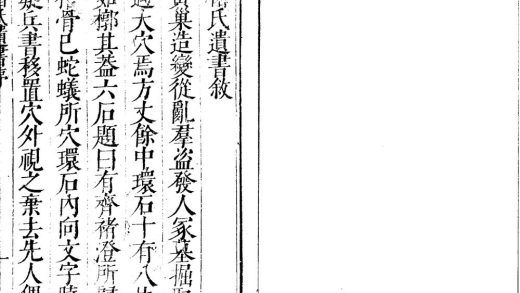 氏遺書敘
黃巢造變從亂羣盜發人冢墓掘
大穴焉方丈餘中環石十有八片
如槨其葢六石題曰有齊褚澄所歸
骨已蛇蟻所穴環石內向文字
疑兵書移置穴外視之棄去先人偶